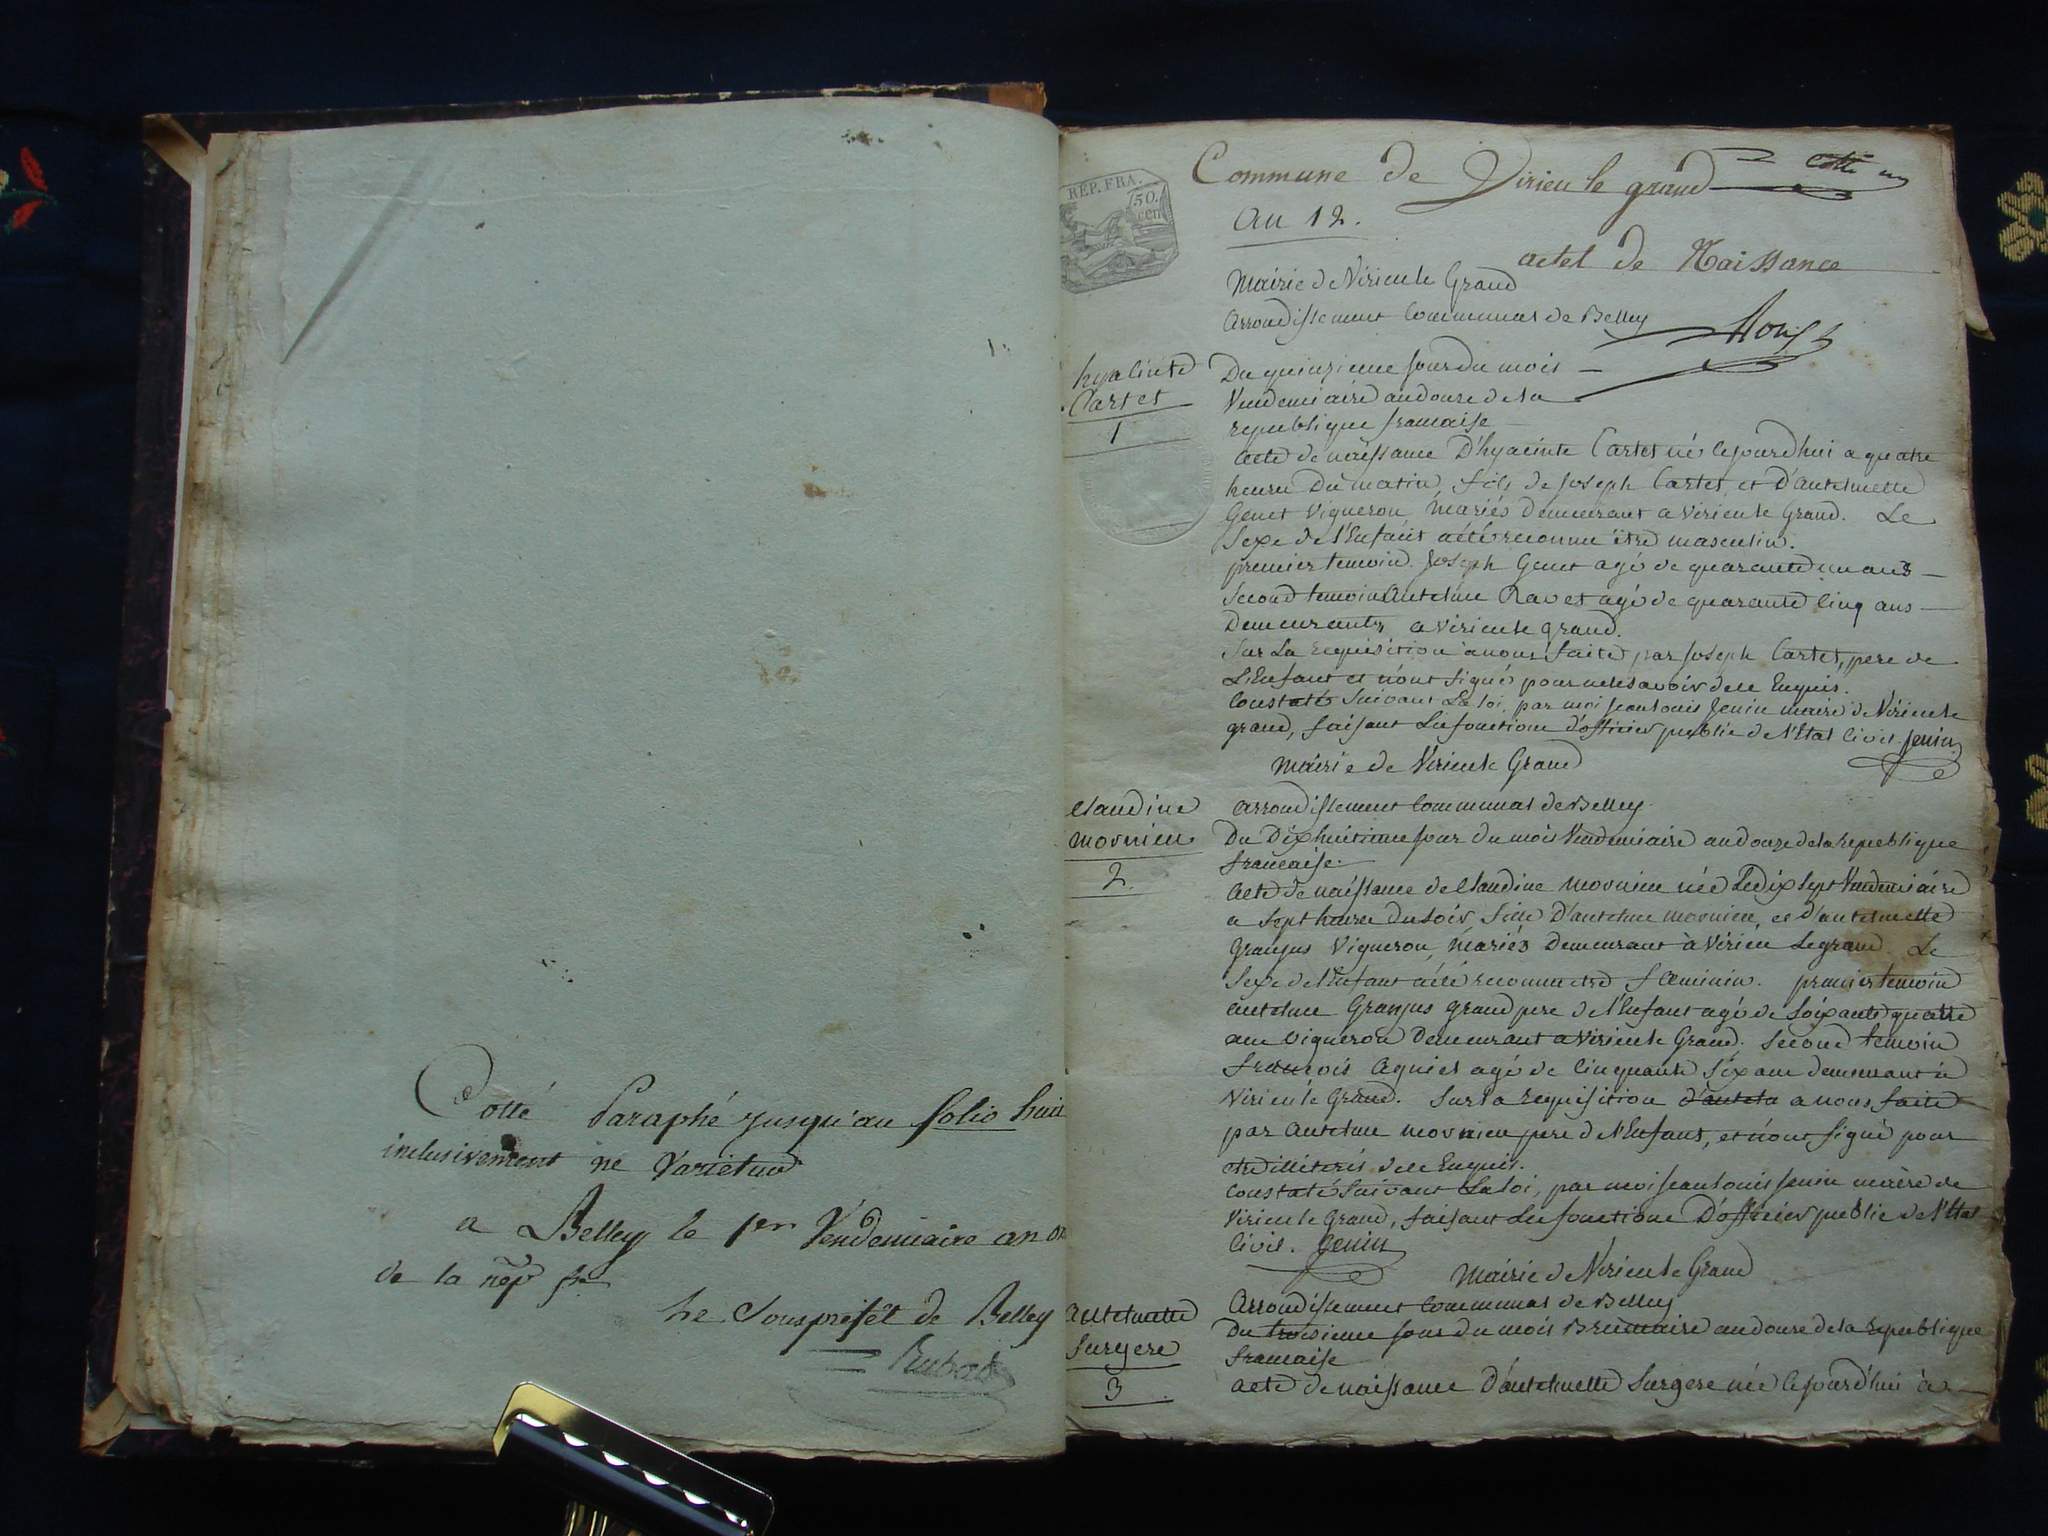 Cotté Paraphé jusqu'au folio huit
inclusivement ne varietur
a Belley le 1er Vendemiaire an
de la rep fr
Le Souspréfet de Belley
REP. FRA.
50.
cen
Commune de Virieu le grand
Cotté un
an 12.
actes de Naissance
Mairie de Virieu le Grand
Arrondissement Communal de Belley
hyacinte
Cartet
1
Du quinzieme jour du mois
Vendemiaire an douze de la
republique francaise
Acte de naissance D'hyacinte Cartet né cejourdhui a quatre
heures Du matin, fils de Joseph Cartet et D'antelmette
Genet Vigneron, mariés Demeurant a Virieu le Grand. Le
Sexe de l'Enfant a été reconnu être masculin.
premier temoin Joseph Genet agé de quarante un ans
Second temoin Antelme Ravet agé de quarante cinq ans
Demeurants a Virieu le grand.
Sur La requisition a nous faite par Joseph Cartet, pere de
L'Enfant et n'ont signé pour ne le savoir de ce Enquis.
Constaté Suivant La loi, par moi Jean Louis Jenin maire de Virieu le
grand, faisant Les fonctions d'officier public de l'Etat Civil Jenin
Mairie de Virieu le Grand
Claudine
mornieu
2
Arrondissement Communal de Belley
Du Dixhuitieme jour du mois Vendemiaire an douze de la republique
francaise.
Acte de naissance de Claudine mornieu née Le dix sept Vendemiaire
a sept heures du soir, fille D'antelme mornieu, et d'antelmette
Granjus Vigneron, mariés Demeurant à Virieu Le grand. Le
Sexe de l'Enfant a été reconnu etre fœminin. premier temoin
antelme Granjus grand pere de l'Enfant agé de soixante quatre
ans Vigneron Demeurant a Virieu le Grand. Second temoin
francois Aguiet agé de Cinquante six ans demeurant à
Virieu le Grand. Sur la requisition d'antelm a nous faite
par antelme mornieu pere de l'Enfant, et n'ont signé pour
etre illiterés de ce Enquis.
Constaté Suivant La loi, par moi Jean Louis Jenin maire de
Virieu le Grand, faisant Les fonctions D'officier public de l'Etat
Civil. Jenin
Mairie de Virieu le Grand
Antelmette
Surgere
3
Arrondissement Communal de Belley
Du troisieme jour du mois Brumaire an douze de la republique
francaise
Acte de naissance D'antelmette Surgere née cejourd'hui à